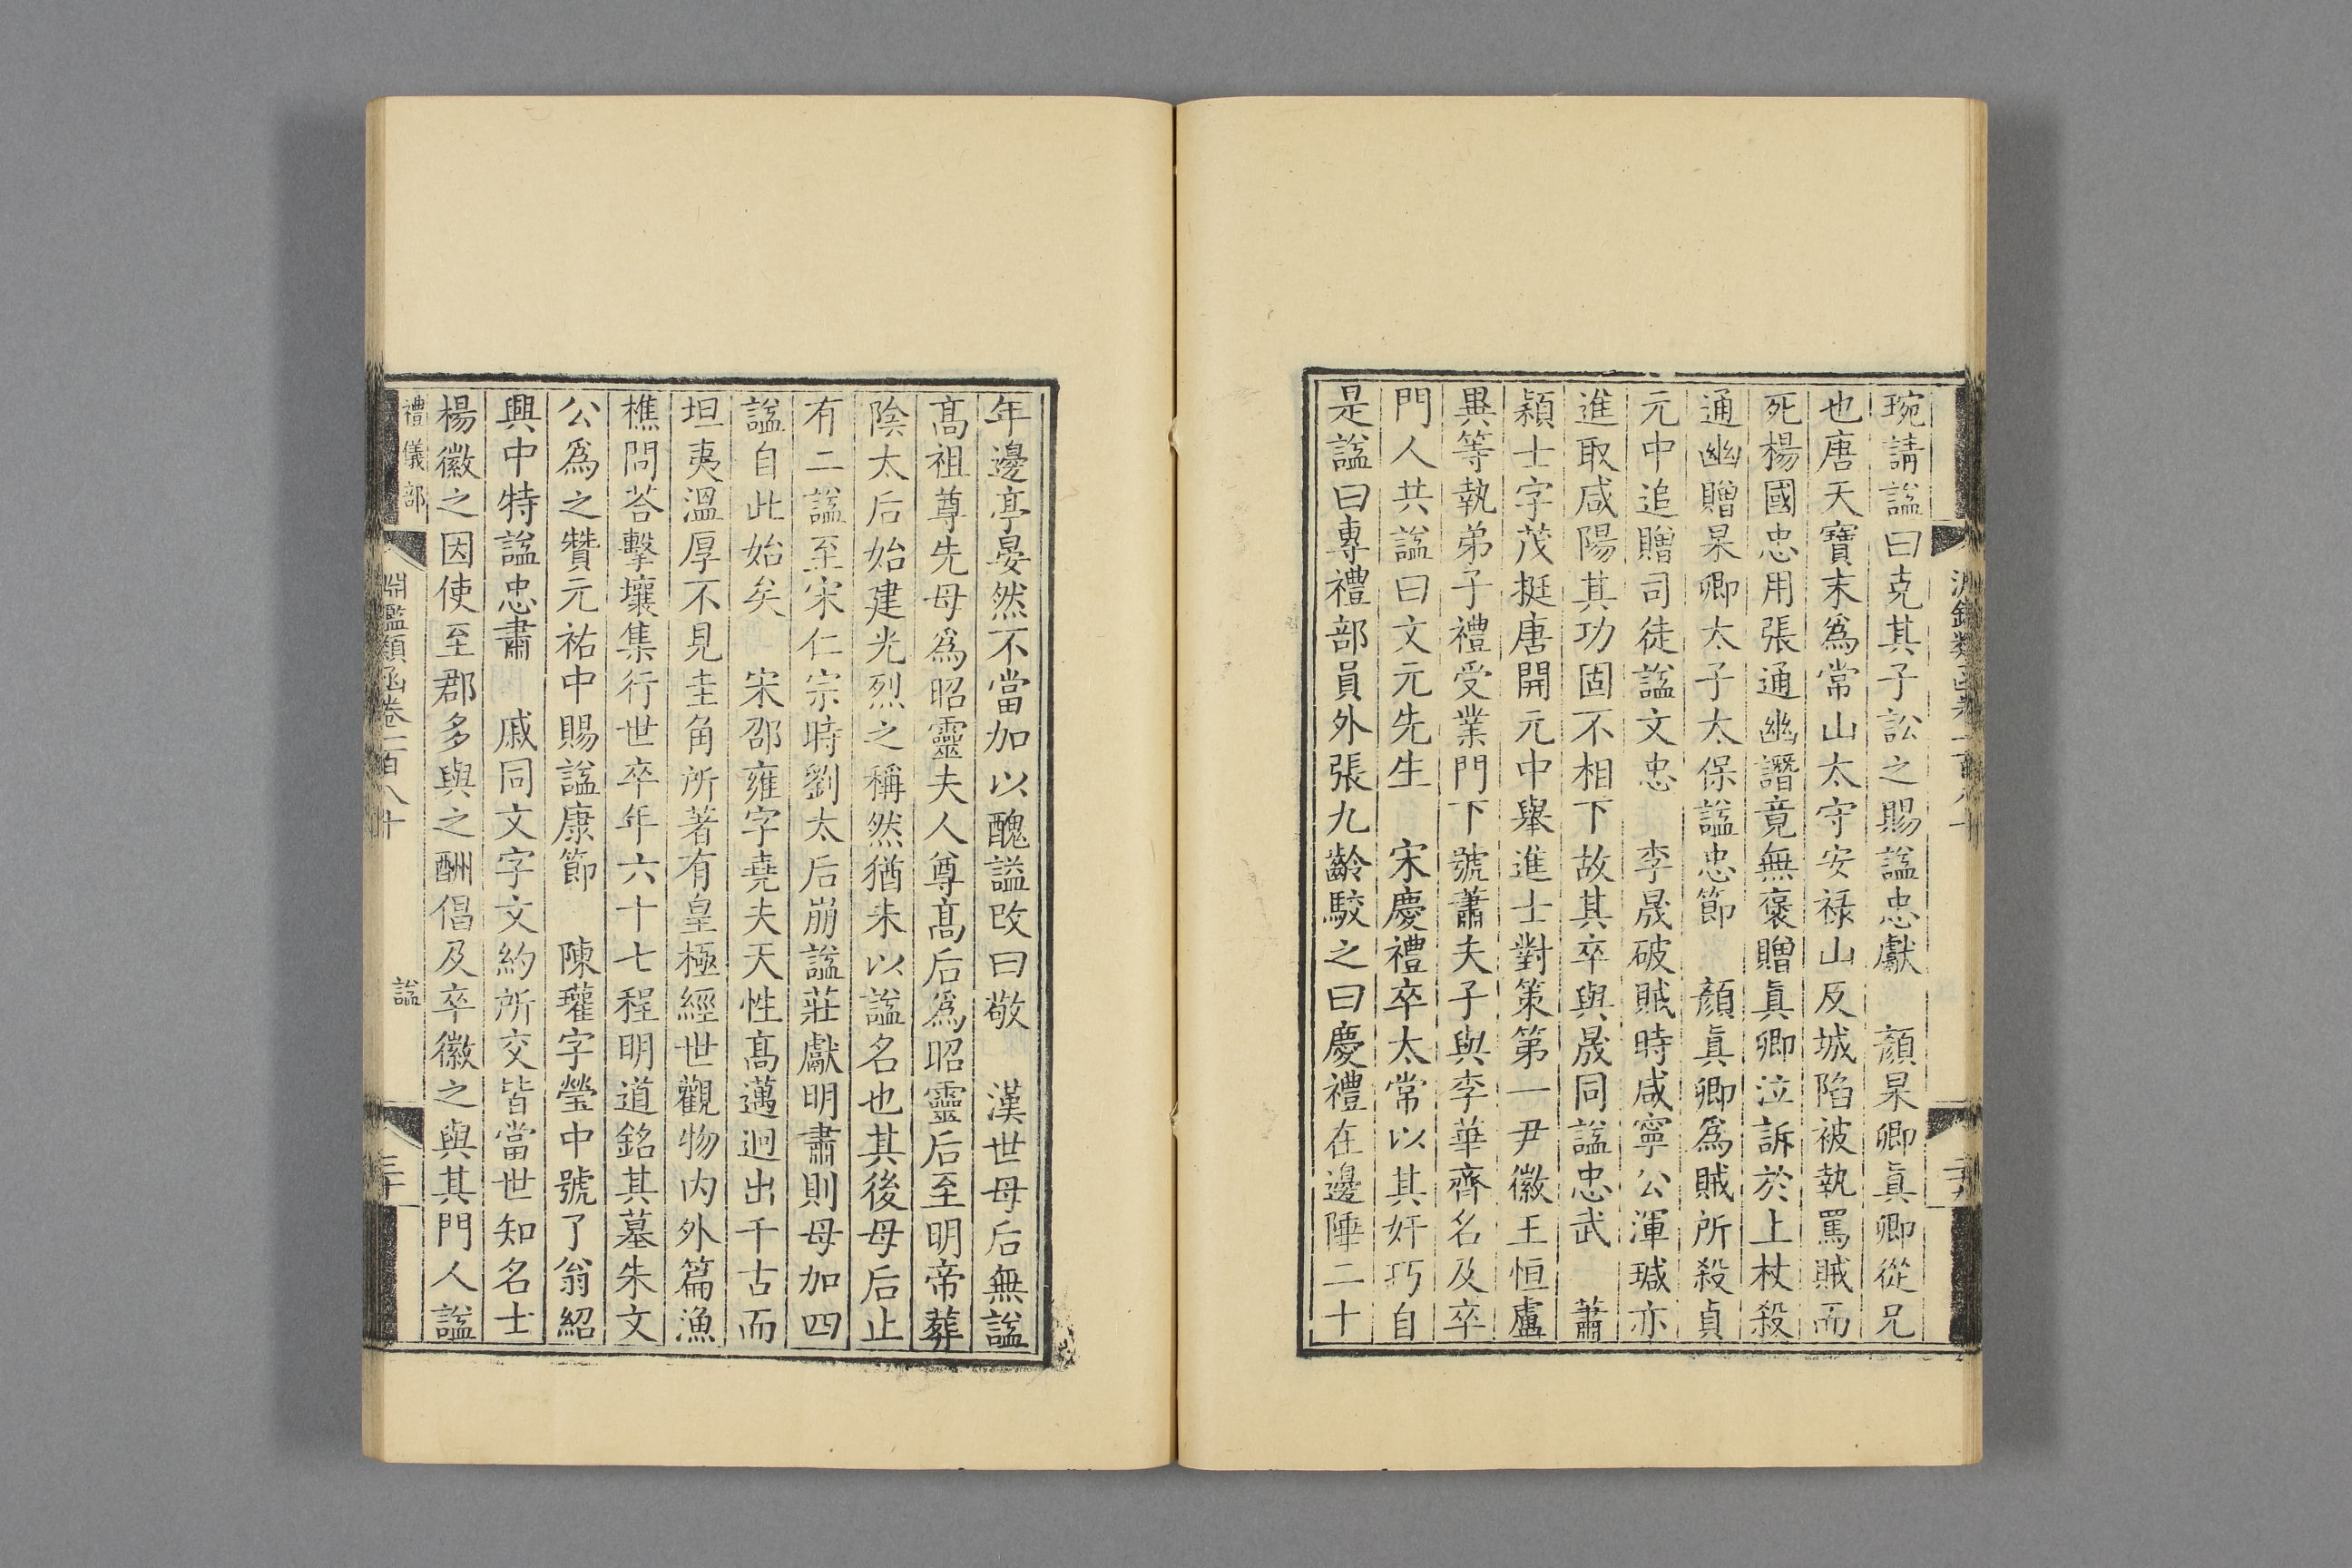 琬請諡曰克其子訟之賜諡忠獻　顏杲卿眞卿從兄
也唐天寶末爲常山太守安祿山反城陷被執罵賊而
死楊國忠用張通幽譖竟無褒贈眞卿泣訴於上杖殺
通幽贈杲卿太子太保諡忠節　顏眞卿爲賊所殺貞
元中追贈司徒諡文忠　李晟破賊時咸寧公渾瑊亦
進取咸陽其功固不相下故其卒與晟同諡忠武　蕭
穎士字茂挺唐開元中舉進士對策第一尹徽王恒盧
異等執弟子禮受業門下號蕭夫子與李華齊名及卒
門人共諡曰文元先生　宋慶禮卒太常以其奸巧自
是諡曰專禮部員外張九齡駮之曰慶禮在邊陲二十
年邊亭晏然不當加以醜諡改曰敬　漢世母后無諡
髙祖尊先母爲昭靈夫人尊髙后爲昭靈后至明帝葬
陰太后始建光烈之稱然猶未以諡名也其後母后止
有二諡至宋仁宗時劉太后崩諡莊獻明肅則母加四
諡自此始矣　宋邵雍字堯夫天性髙邁迥出千古而
坦夷溫厚不見圭角所著有皇極經世觀物内外篇漁
樵問荅擊壤集行世卒年六十七程明道銘其墓朱文
公爲之贊元祐中賜諡康節　陳瓘字瑩中號了翁紹
興中特諡忠肅　戚同文字文約所交皆當世知名士
楊徽之因使至郡多與之酬倡及卒徽之與其門人諡
禮儀部
淵鑑類函卷一百八十
諡